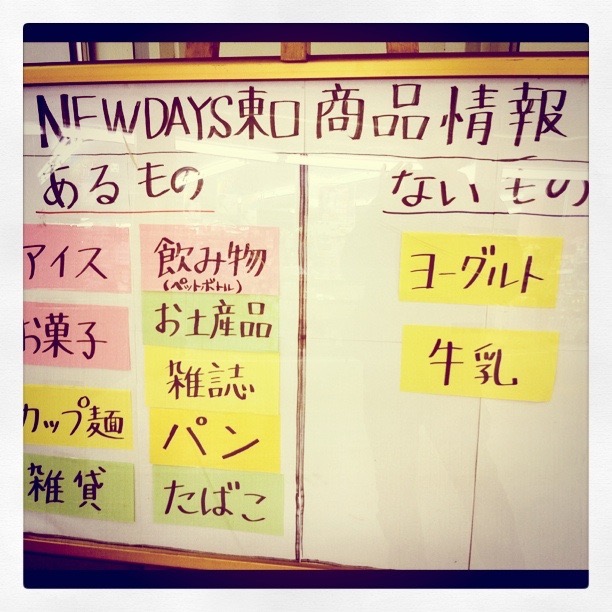 NEWDAYS東口 商品情報
あるもの
アイス
お菓子
カップ麺
雑貨
飲み物
(ペットボトル)
お土産品
雑誌
パン
たばこ
ないもの
ヨーグルト
牛乳